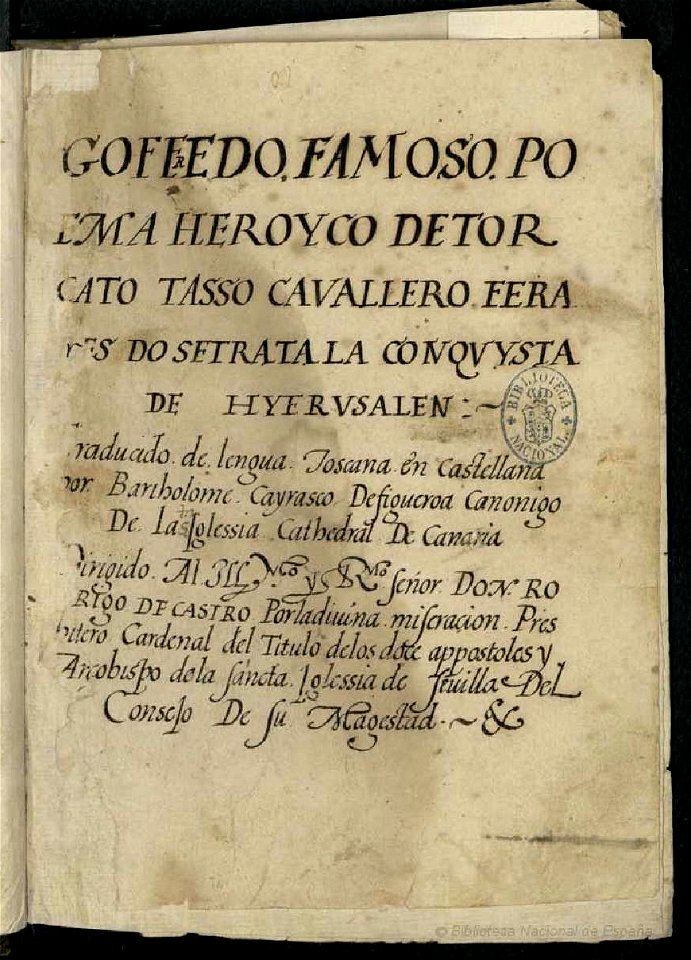 GOFFREDO. FAMOSO. PO
EMA HEROYCO DE TOR
CATO TASSO CAVALLERO FERA
RES DO SE TRATA LA CONQVYSTA
DE HYERVSALEN:~
BIBLIOTECA NACIONAL
Traducido. de. lengua. Toscana. en Castellana
por Bartholome. Cayrasco De figueroa Canonigo
De La Iglessia Cathedral De Canaria
Dirigido. Al Ill.mo y R.mo señor DON. RO
RIGO DE CASTRO Por la diuina. miseracion. Pres
bitero Cardenal del Titulo de los doce appostoles y
Arcobispo de la sancta. Iglessia de seuilla Del
Consejo De su Magestad. ~ &
© Biblioteca Nacional de España